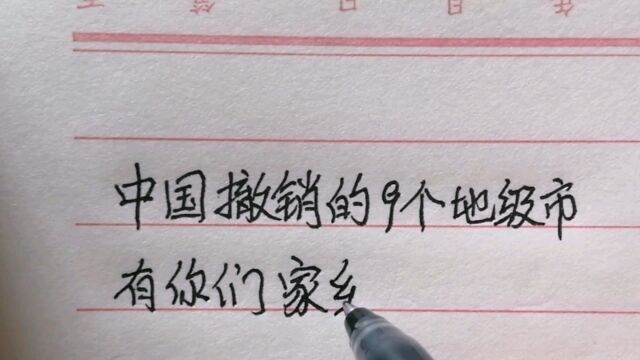 中国撤销的9个地级市
有你们家乡